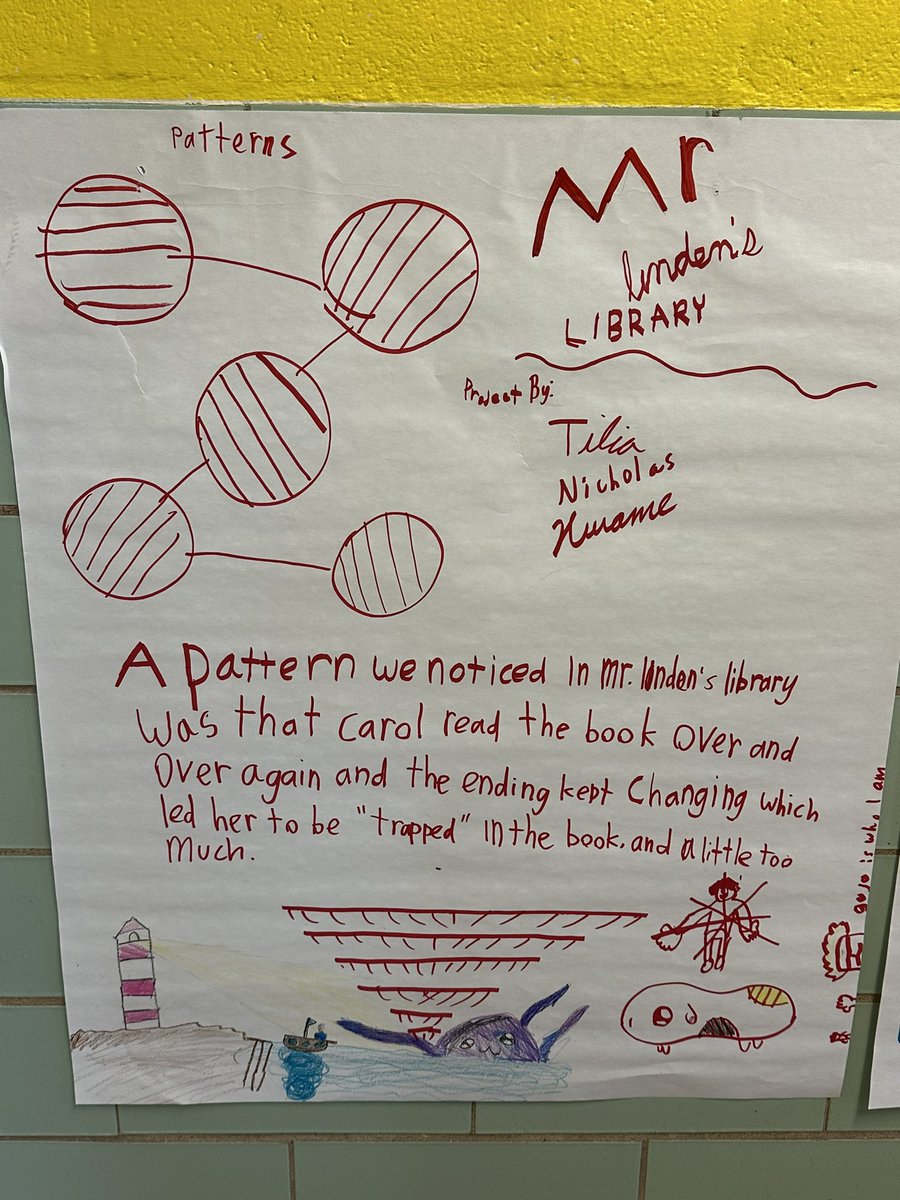 Patterns
Mr
linden's
LIBRARY
Project By:
Tilia
Nicholas
Kwame
A pattern we noticed In mr. linden's library
was that carol read the book over and
Over again and the ending kept Changing which
led her to be "trapped" in the book. and a little too
much.
gojo is who I am